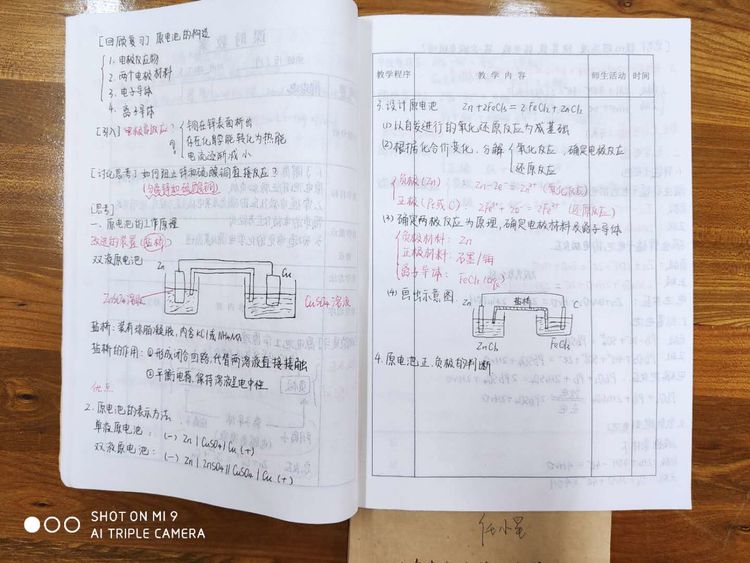 [回顾复习] 原电池的构造
1. 电极反应物
2. 两个电极材料
3. 电子导体
4. 离子导体
[引入] 电极反应? 铜在锌表面析出
存在化学能转化为热能
电流逐渐减小
[讨论思考] 如何阻止锌和硫酸铜直接反应?
(分离锌和硫酸铜)
[思考]
一. 原电池的工作原理
改进的装置 (盐桥)
双液原电池
Zn
Cu
ZnSO4溶液
CuSO4溶液
盐桥: 装有琼脂凝胶, 内含KCl或NH4NO3
盐桥的作用: ①形成闭合回路, 代替两溶液直接接触
②平衡电荷, 保持溶液呈电中性
优点
2. 原电池的表示方法
单液原电池: (-) Zn | CuSO4 | Cu (+)
双液原电池: (-) Zn | ZnSO4 || CuSO4 | Cu (+)
教学程序 教 学 内 容 师生活动 时间
3. 设计原电池 Zn+2FeCl3=2FeCl2+ZnCl2
(1) 以自发进行的氧化还原反应为基础
(2) 根据化合价变化, 分解 氧化反应, 确定电极反应
还原反应
负极 (Zn) Zn-2e⁻=Zn²⁺ (氧化反应)
正极 (Pt或C) 2Fe³⁺+2e⁻=2Fe²⁺ (还原反应)
(3) 确定两极反应为原理, 确定电极材料及离子导体
负极材料: Zn
正极材料: 石墨/铂
离子导体: FeCl3 (aq)
(4) 画出示意图
Zn 盐桥 C
ZnCl2 FeCl3
4. 原电池正、负极的判断
SHOT ON MI 9
AI TRIPLE CAMERA
任小星